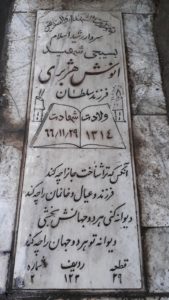 سردار رشید اسلام
بسیجی شهید
فرزند سلطان
ولادت شهادت
۱۳۱۴ ۶۶/۱۱/۲۹
آنکس که ترا شناخت جانرا چه کند
فرزند و عیال و خانمان را چه کند
دیوانه کنی هر دو جهانش بخشی
دیوانه تو هر دو جهان را چه کند
قطعه ردیف شماره
۲۹ ۱۲۳ ۲